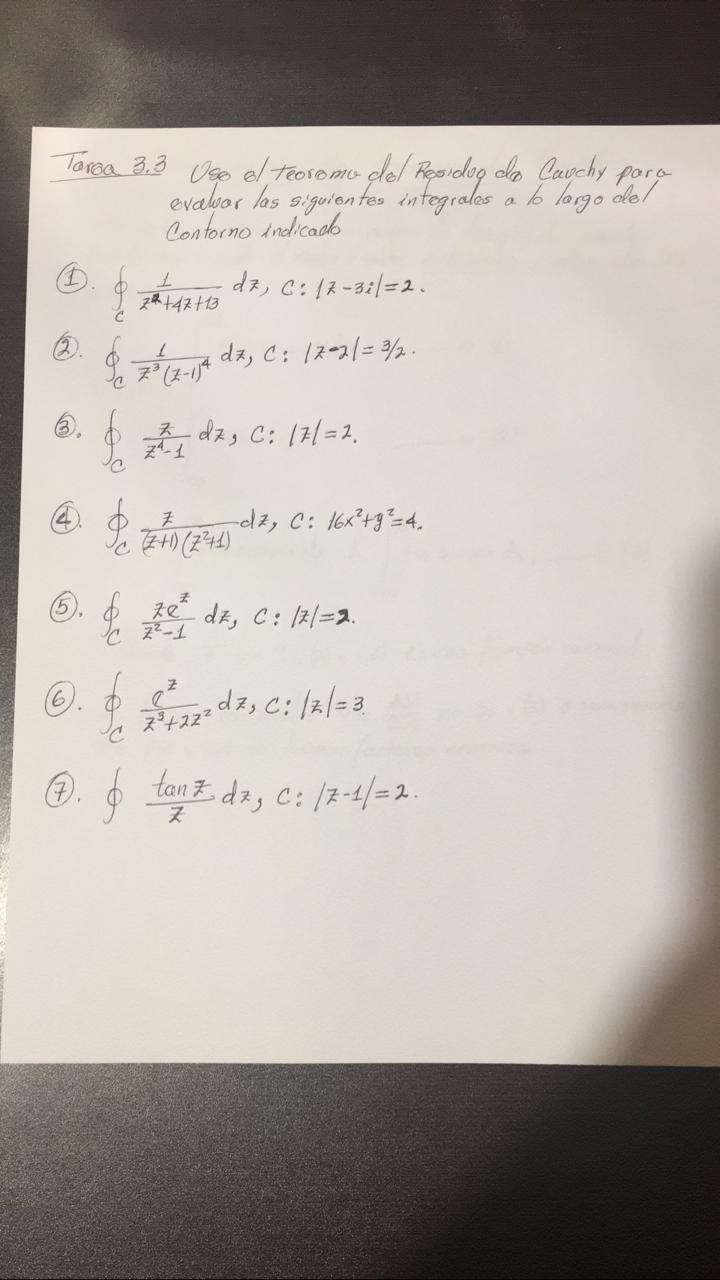 Tarea 3.3 Use el teorema del Residuo de Cauchy para
evaluar las siguientes integrales a lo largo del
Contorno indicado
①. ∮_C 1/(z²+4z+13) dz, C: |z-3i|=2.
②. ∮_C 1/(z³(z-1)⁴) dz, C: |z-2|=3/2.
③. ∮_C z/(z⁴-1) dz, C: |z|=2.
④. ∮_C z/((z+1)(z²+1)) dz, C: 16x²+y²=4.
⑤. ∮_C ze^z/(z²-1) dz, C: |z|=2.
⑥. ∮_C e^z/(z³+2z²) dz, C: |z|=3.
⑦. ∮ tan z/z dz, C: |z-1|=2.